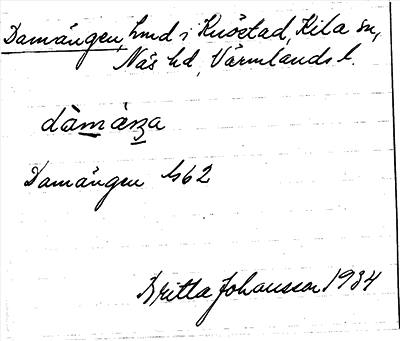 Damängen, hmd i Knöstad, Kila sn,
Näs hd, Värmlands l.
Damängen 1/62
Britta Johansson 1934